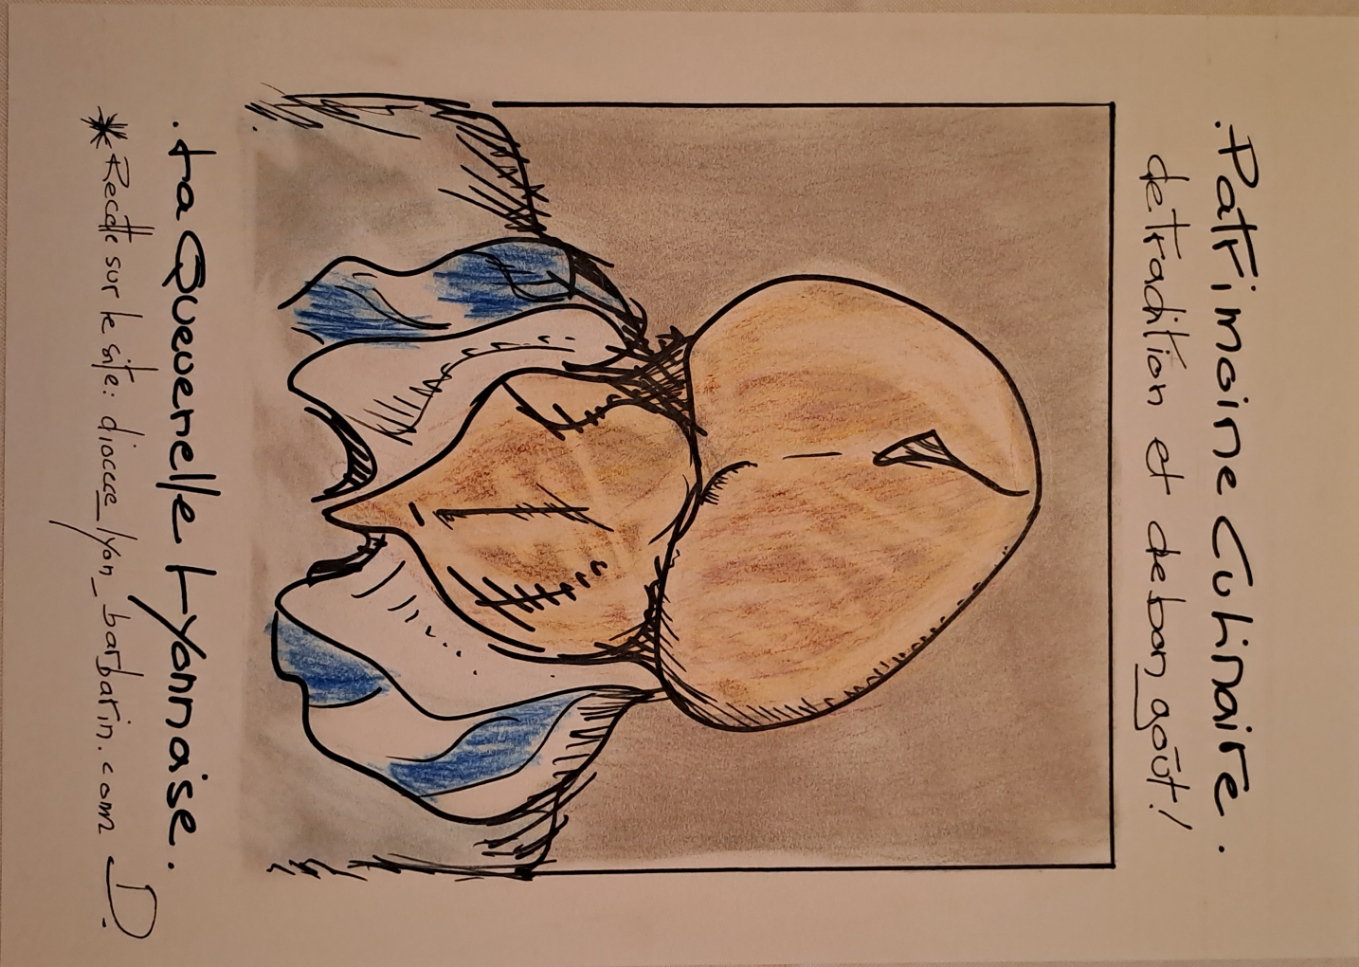 . Patrimoine Culinaire .
de tradition et de bon_goût !
. La Quewenelle Lyonnaise .
* Recette sur le site : diocce_lyon_barbarin.com D.